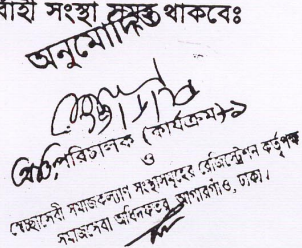 বাহী সংস্থা সমুহ থাকবেঃ
অনুমোদিত
পরিচালক (কার্যক্রম)
ও
স্বেচ্ছাসেবী সমাজকল্যাণ সংস্থাসমূহের রেজিস্ট্রেশন কর্তৃপক্ষ
সমাজসেবা অধিদফতর, আগারগাঁও, ঢাকা।